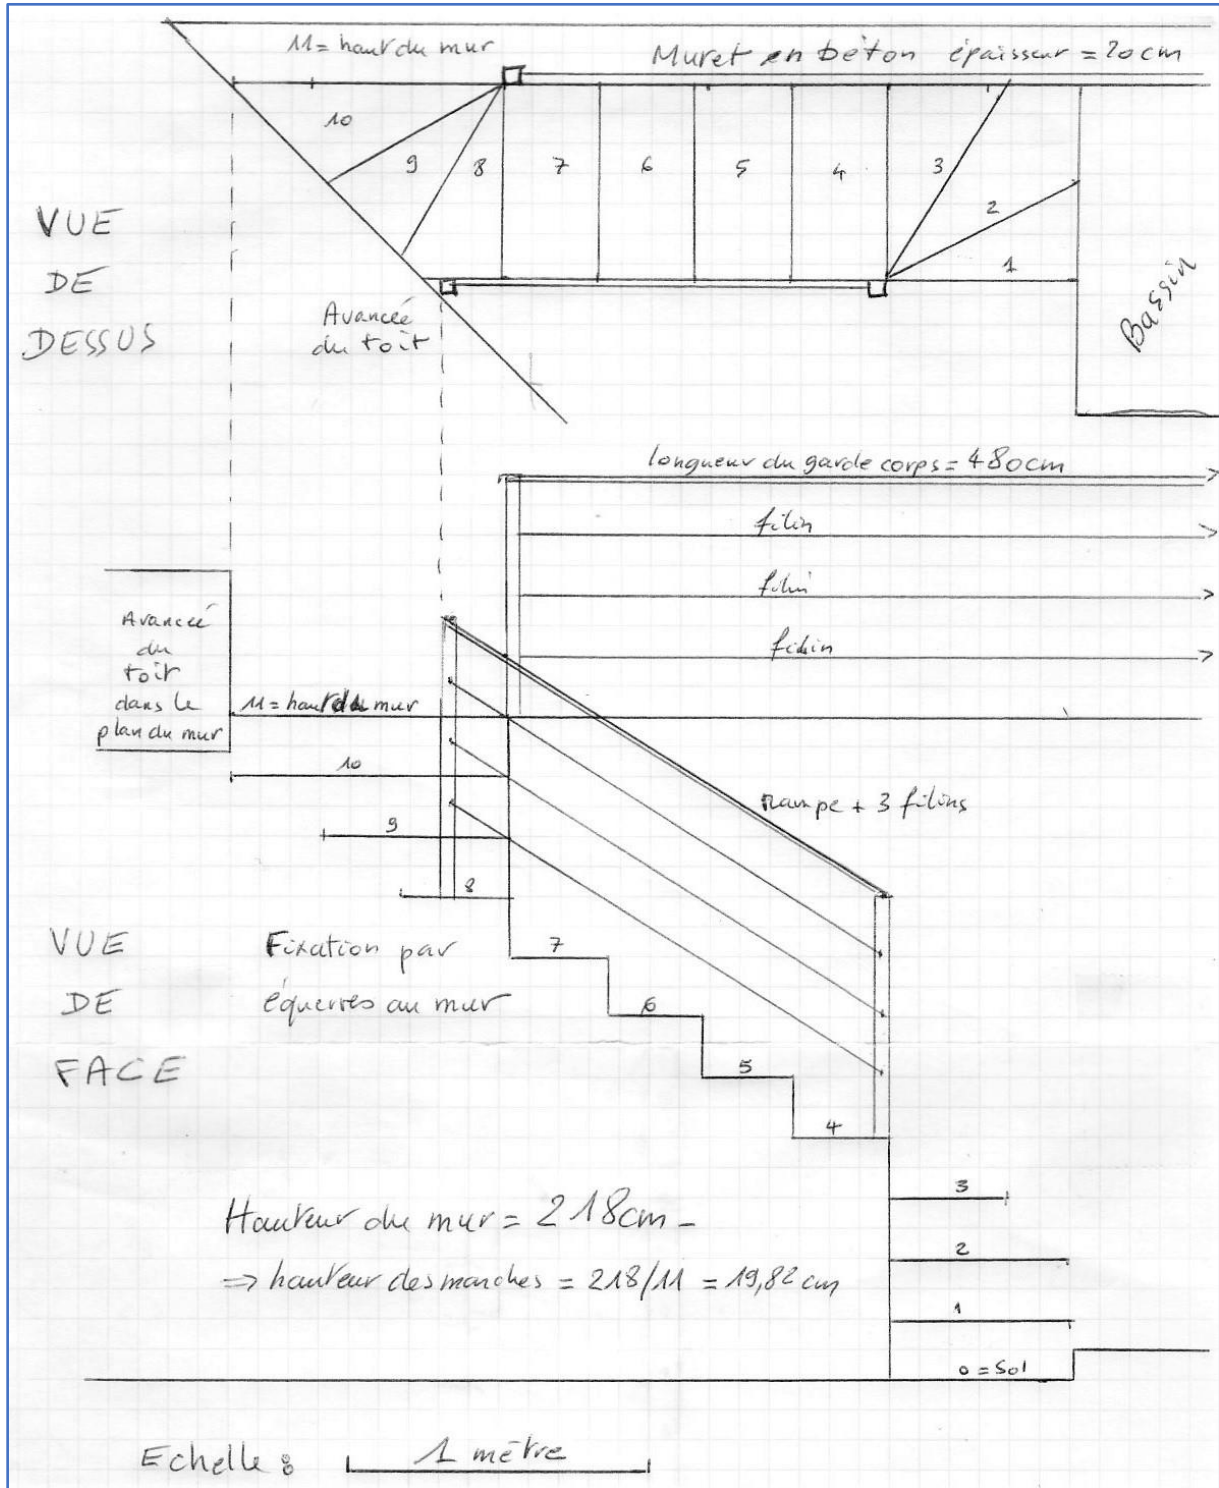 11 = haut du mur
Muret en béton épaisseur = 20cm
10
9
8
7
6
5
4
3
2
1
VUE
DE
DESSUS
Avancée
du toit
Bassin
longueur du garde corps = 480cm
filin
filin
filin
Avancée
du
toit
dans le
plan du mur
11 = haut du mur
10
9
8
Rampe + 3 filins
VUE
DE
FACE
Fixation par
équerres au mur
7
6
5
4
3
2
1
0 = Sol
Hauteur du mur = 218cm -
=> hauteur des marches = 218/11 = 19,82 cm
Echelle : 1 mètre